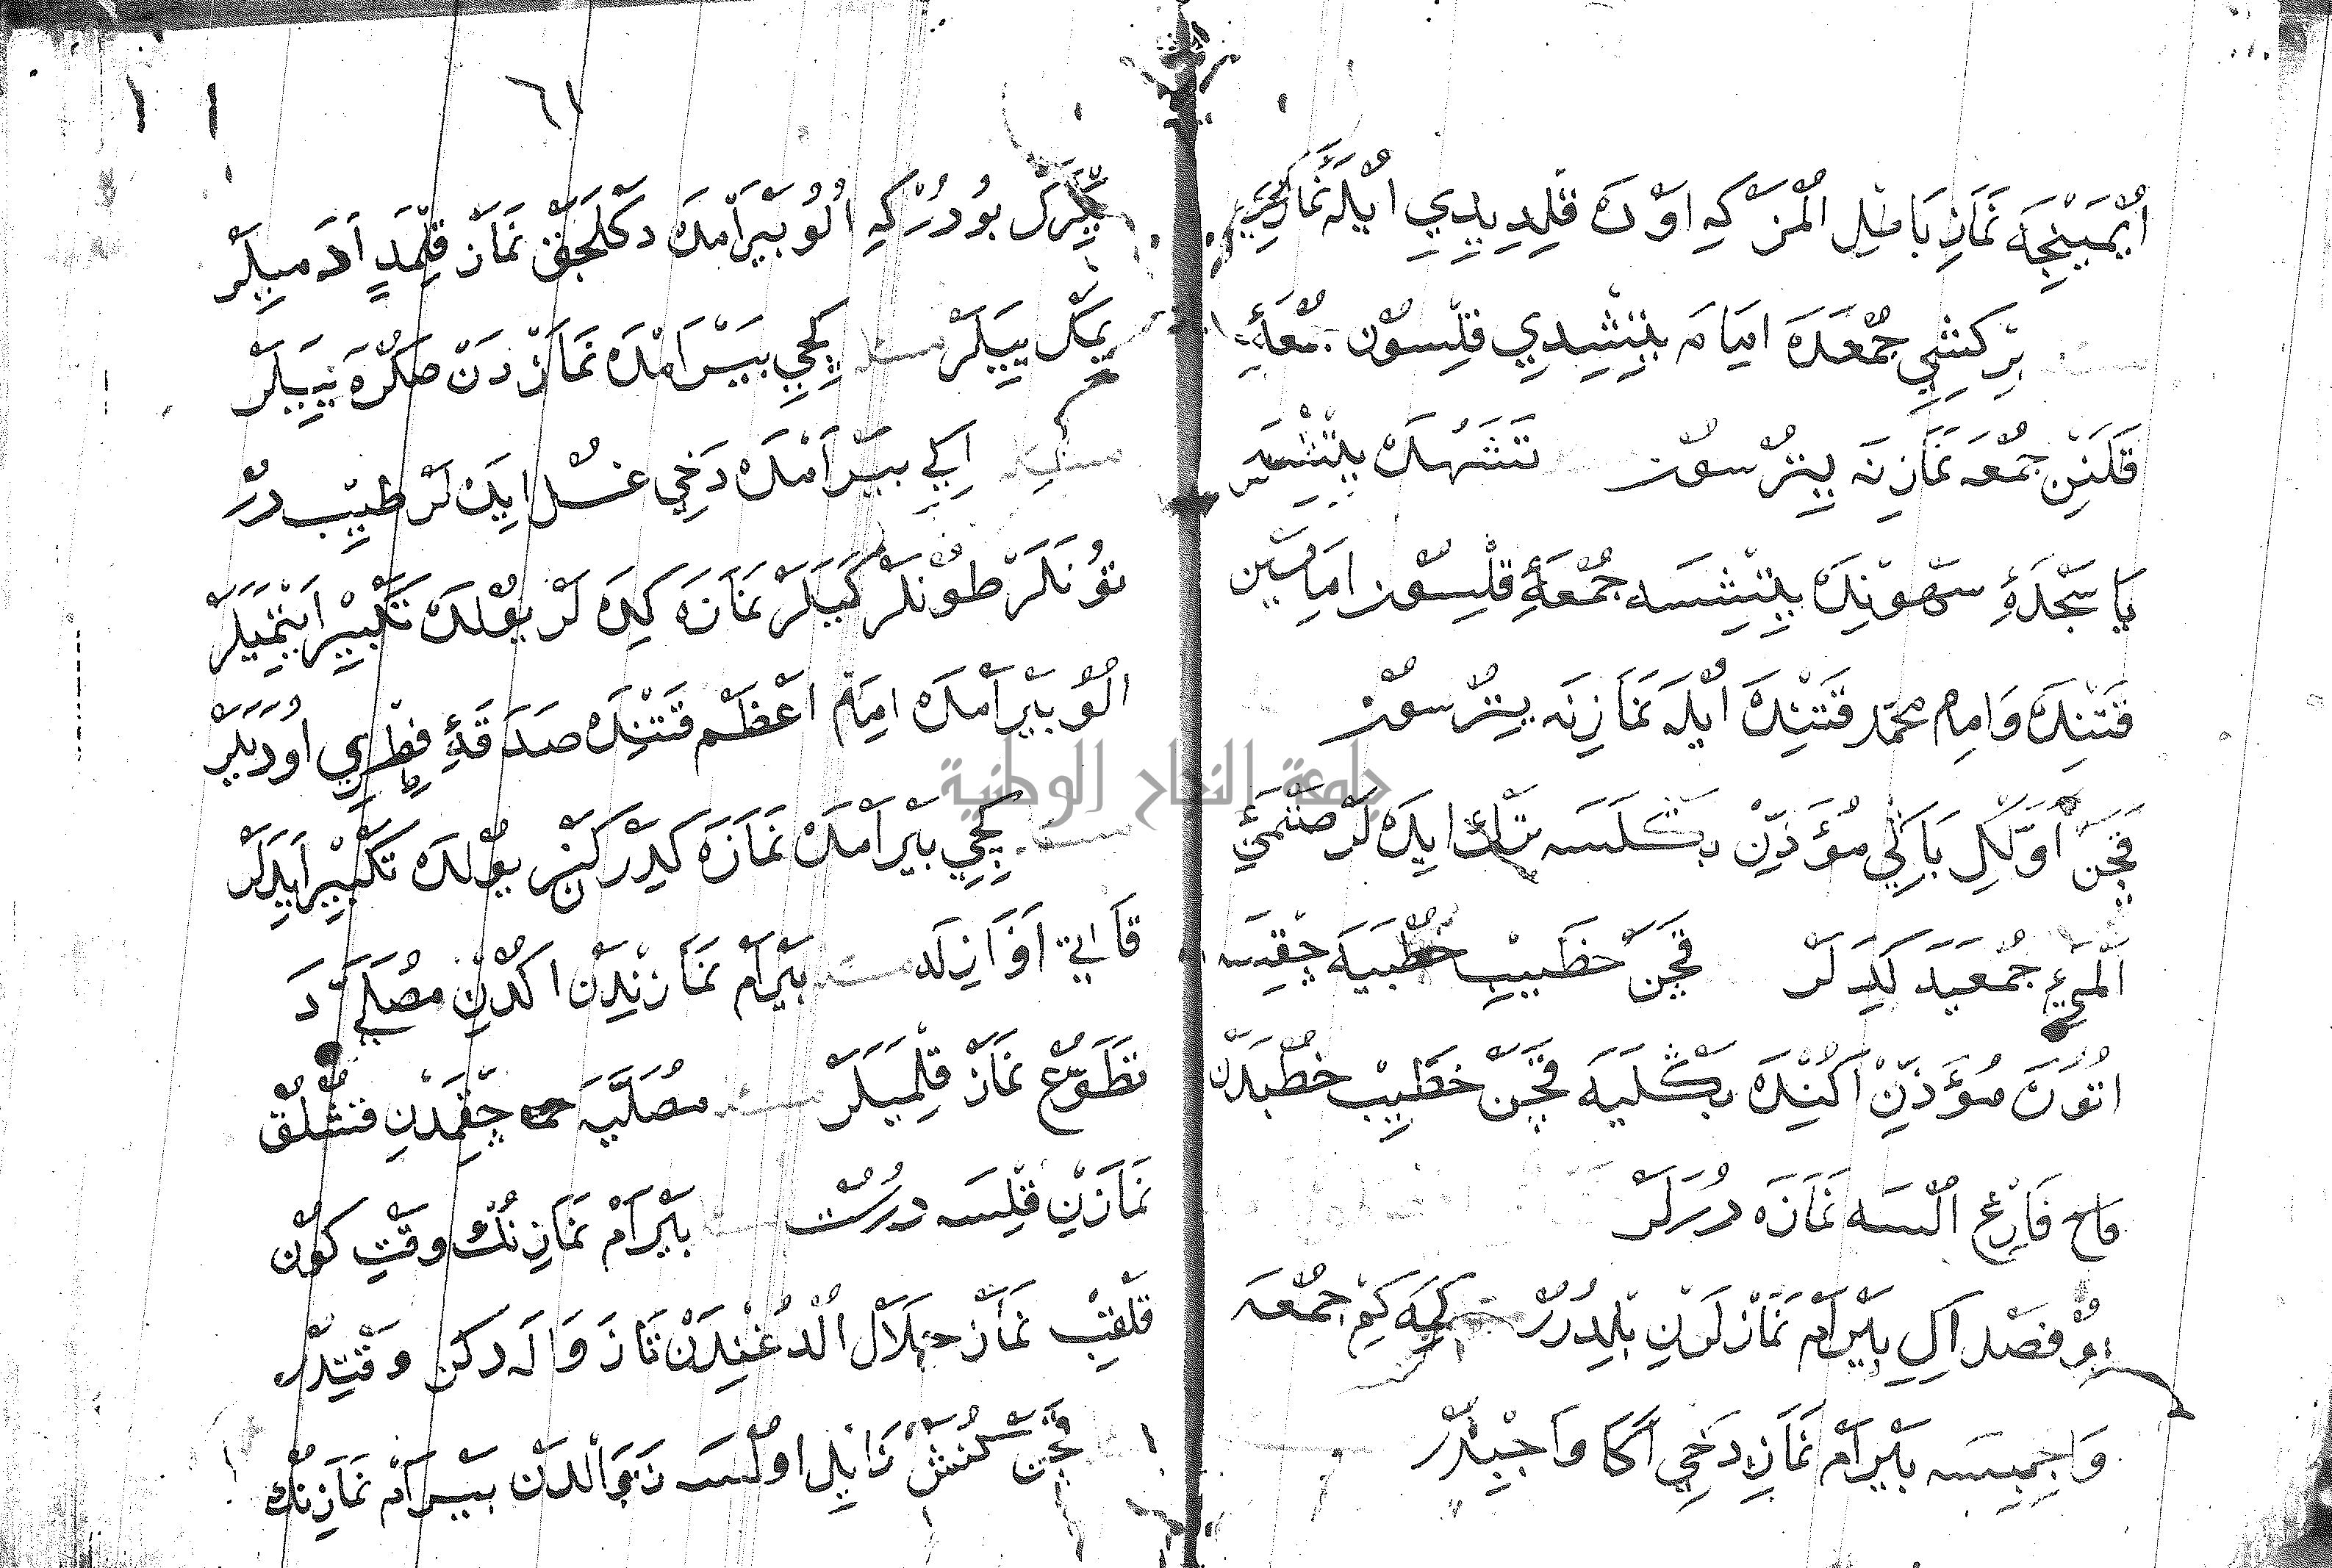 اُيْمَيِنْجَه نَمَازِ بَاطِل اُلْمَزْ كِه اَوْدَه قِلِدِيدِي اُيْلَه نَمَازِي
بِرْ كِشِي جُمْعَدَه اِمَامَه يِتِشِدِي قِلِسُونْ جُمْعَهِٔ
قَلَنِنْ جُمْعَه نَمَازِنَه يِتُرْسُونْ تَشَهُدَه يِتِشْسَه
يَا سَجْدَهِٔ سَهْوِنْدَه يِتِشِسَه جُمْعَهِٔ قِلْسُونْ اِمَامَيْن
قَتِنْدَه وَامِام محمّد قَتِنْدَه اُيْلَه نَمَازِنَه يِتُرْسُونْ
قَچَنْ اَوَّلْكِي بَاڭِي مُؤَذِّنْ بَشْلَسَه تَرْك اِيدَه لَرْ صَتْمَغِي
اَلْمَغِي جُمْعَيَه كِيدَه لَرْ قَچَنْ خَطِيبْ خُطْبَيَه چِقِسَه
اُتُورَه مُؤَذِّنْ اُڭُنْدَه بَشْلَيَه قَچَنْ خَطِيبْ خُطْبَدَنْ
فَارِغْ اُلْسَه نَمَازَه دُرَلَرْ
بُو فَصْل اِكِي بَيْرَامْ نَمَازْلَرِن بِلْدُرُرْ كِمَه كِمْ جُمْعَه
وَاجِبِسَه بَيْرَامْ نَمَازِ دَخِي اَڭَا وَاجِبْدِرْ
٦١
كَرَك بُودُرْ كِه اُلُو بَيْرَامْدَه دڭلَجَقْ نَمَازْ قِلْمَدِن اَدَمِيلَرْ
يِمَك يِيَلَرْ مسئله كِچِي بَيْرَامْدَه نَمَازْدَنْ صُڭْرَه يِيَلَرْ
مسئله اِكِي بَيْرَامْدَه دَخِي غُسْل اِيدَه لَرْ طِيبْ دُرْ
تُونَلَرْ طُونْلَرْ كَيَلَرْ نَمَازَه كِيدَه لَرْ يُولْدَه تَكْبِيرْ اَيِتْمَيَلَرْ
اُلُو بَيْرَامْدَه اِمَامْ اَعْظَمْ قَتِنْدَه صَدَقَهِٔ فِطْرِي اُودَيَلَرْ
مسئله كِچِي بَيْرَامْدَه نَمَازَه كِيدَرْكَنْ يُولْدَه تَكْبِيرْ اَيِدَلَرْ
قَاتِي اَوَازِلَه مسئله بَيْرَامْ نَمَازِنْدَنْ اُڭْدِنْ مُصَلَّا دَ
تَطَوُّعْ نَمَازْ قِلْمَيَلَرْ مسئله مُصَلَّيَه چِقْمَدِنْ قُشْلُقْ
نَمَازِنِ قِلْسَه دُرُسْت مسئله بَيْرَامْ نَمَازِنُكْ وَقْتِ كُونْ
قَلْقِبْ نَمَازْ حَلَالْ اُلْدُغُنْدَنْ تَا زَوَالَه دَكِنْ وَقْتِدِرْ
قَچَنْ كُنَشْ زَايِل اُولْسَه زَوَالْدَنْ بَيْرَامْ نَمَازِنُكْ
جامعة النجاح الوطنية